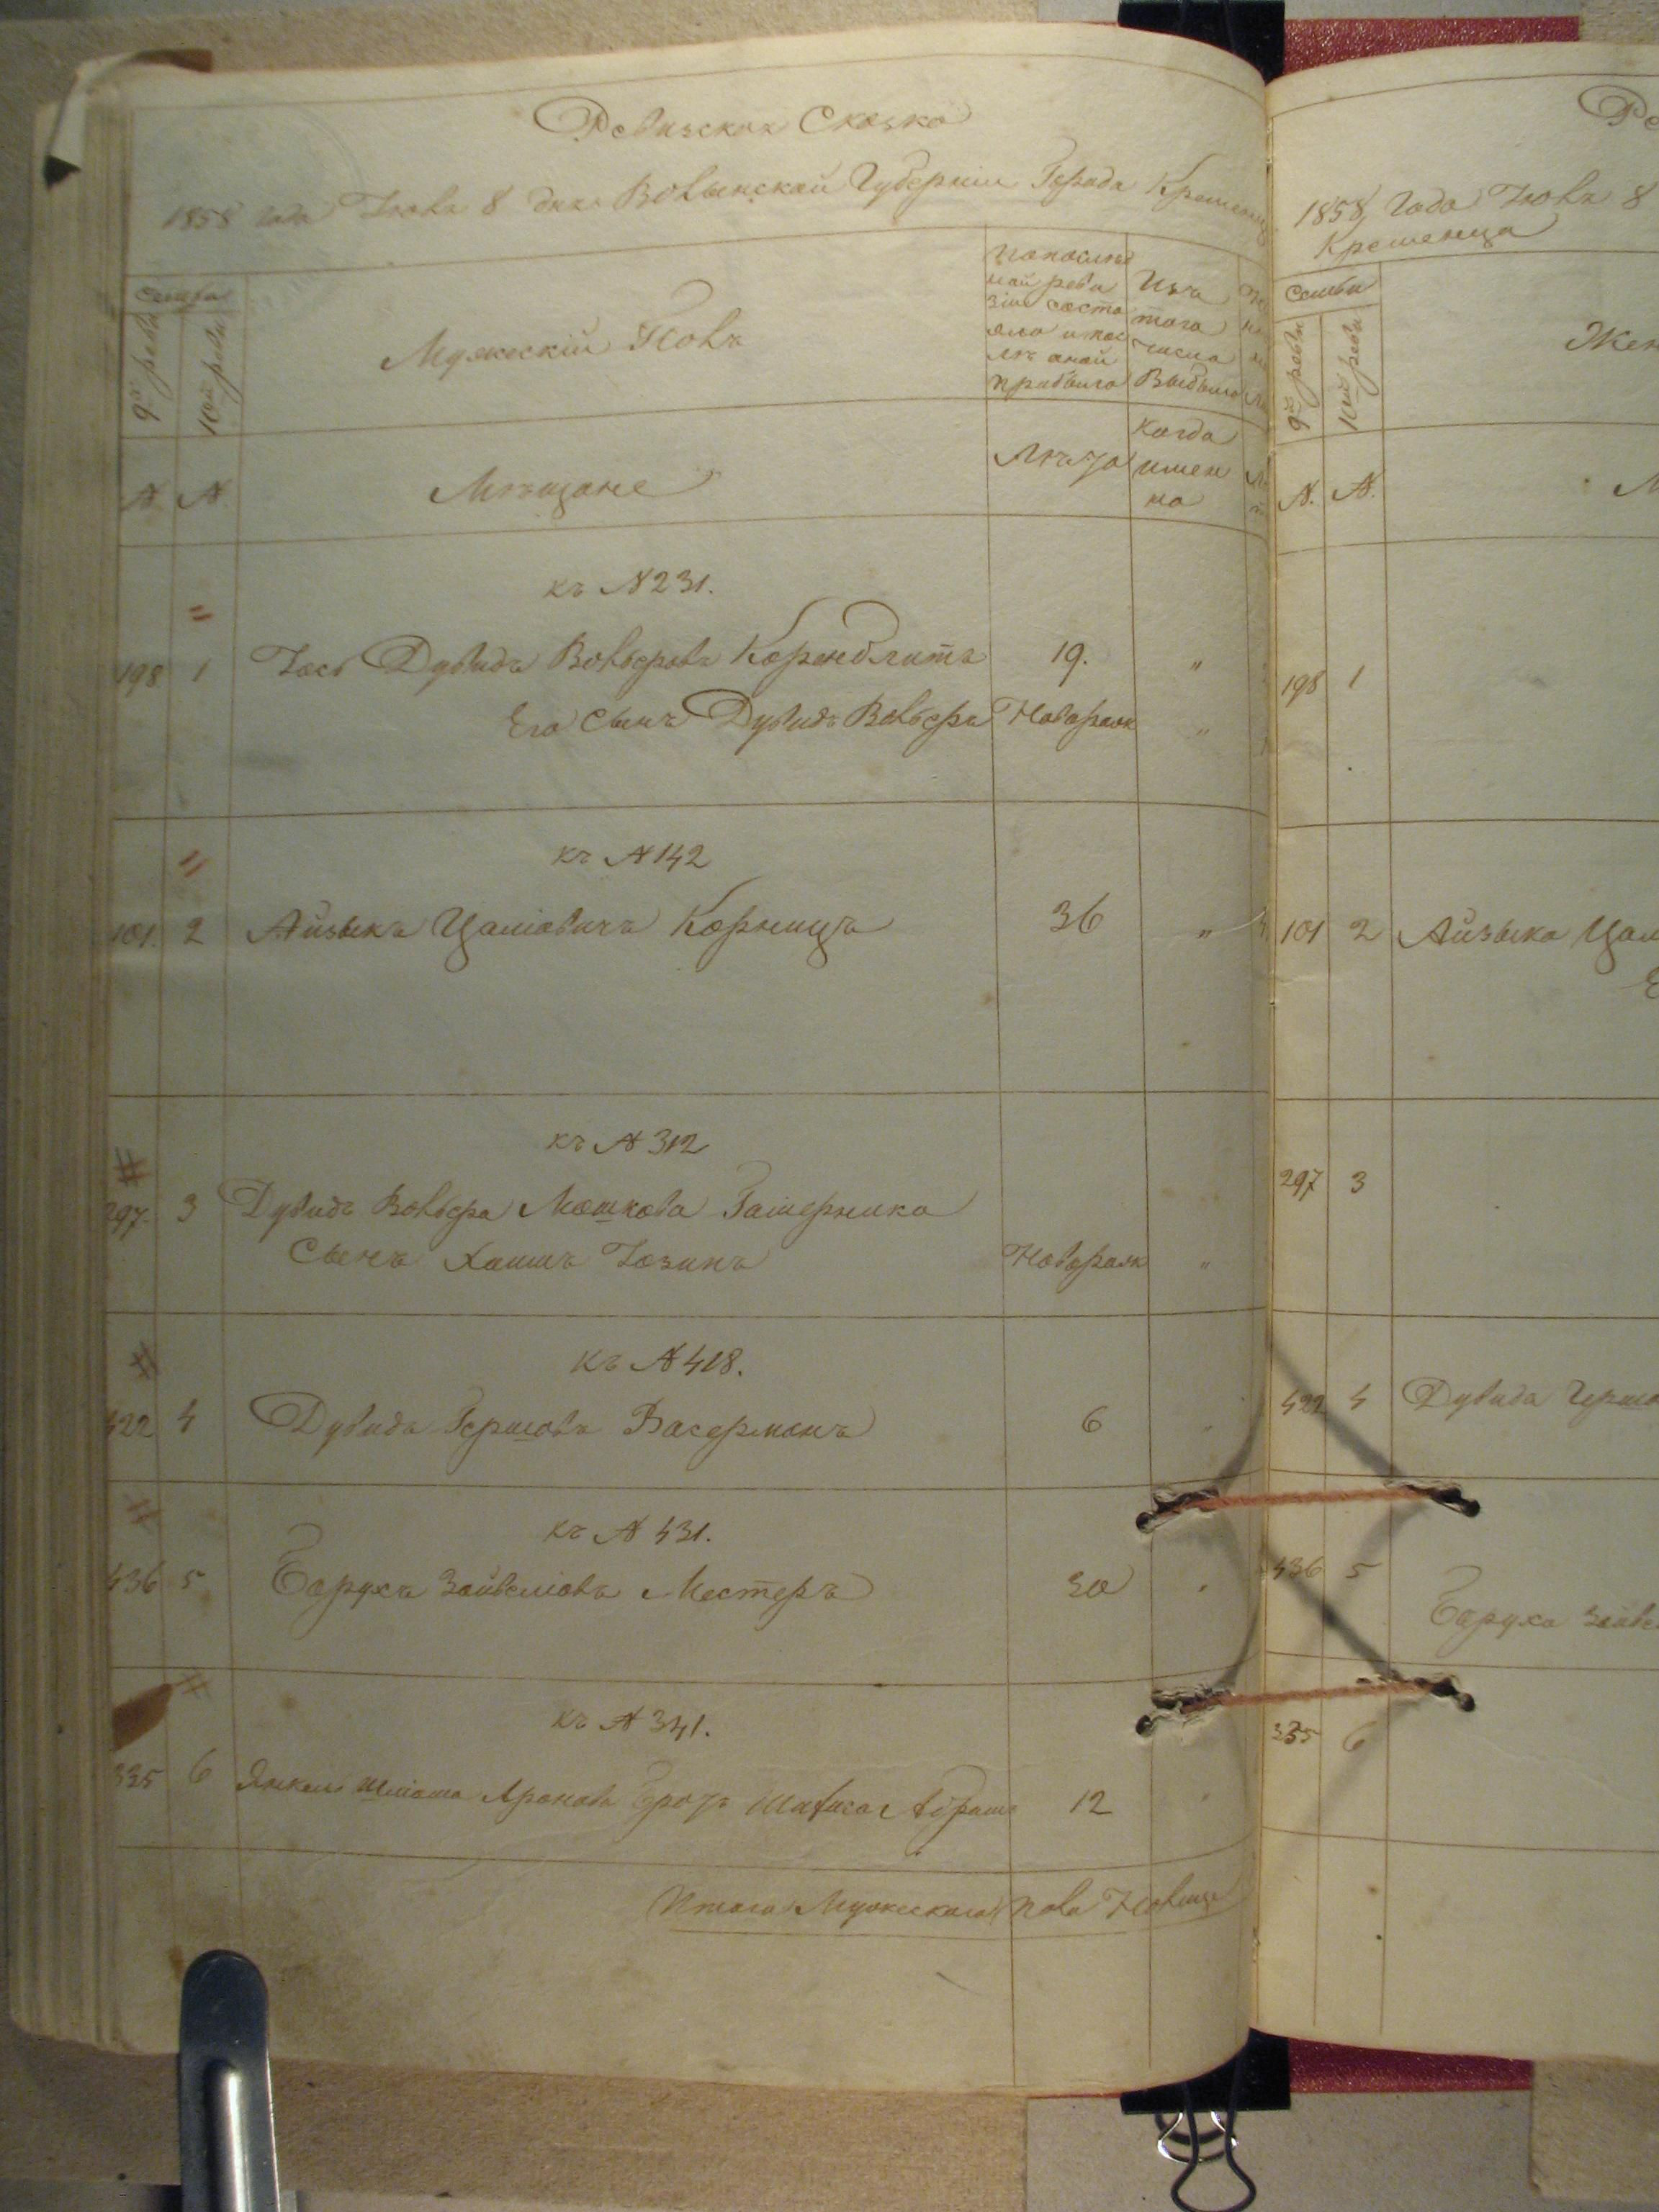 Ревизская Сказка
1858 года Июля 8 дня Волынской Губернии Города Кременца
Семьи
9й ревизи
10й ревизи
Мужескій Полъ
По послѣд
ней реви
зіи состо
яло и пос
лѣ оной
прибыло
Изъ
того
числа
Выбыло
№ №
Мѣщане
Лѣта
Когда
имен
но
къ №231.
198 1 Іось Дувидъ Вольфовъ Коренблитъ 19. "
Его Сынъ Дувидъ Вольфъ Новорожд "
къ №142
101. 2 Айзыкъ Цаліовичъ Корницъ 36 "
къ №312
297. 3 Дувидъ Вольфа Мошкова
Сынъ Хаимъ Новорожд "
къ №418.
422 4 Дувидъ Гершовъ Васерманъ 6 "
къ №431.
436 5 Барухъ Зайвеліовъ Местеръ 30 "
къ №341.
335 6 Янкель Шліома Ароновъ 12 "
Итого Мужескаго пола Налицо
1858 Года Июля 8
Кременца
Семьи
9й ревизи
10й ревизи
Жен
№. №.
198 1
101 2 Айзыка Цал
297 3
422 4 Дувида Гершо
436 5
Баруха Зайве
335 6